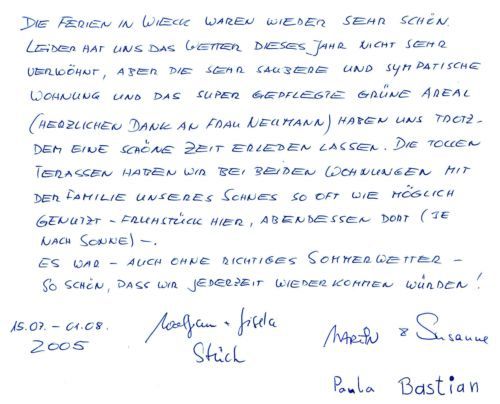 DIE FERIEN IN WIECK WAREN WIEDER SEHR SCHÖN.
LEIDER HAT UNS DAS WETTER DIESES JAHR NICHT SEHR
VERWÖHNT, ABER DIE SEHR SAUBERE UND SYMPATISCHE
WOHNUNG UND DAS SUPER GEPFLEGTE GRÜNE AREAL
(HERZLICHEN DANK AN FRAU NEUMANN) HABEN UNS TROTZ-
DEM EINE SCHÖNE ZEIT ERLEBEN LASSEN. DIE TOLLEN
TERASSEN HABEN WIR BEI BEIDEN WOHNUNGEN MIT
DER FAMILIE UNSERES SOHNES SO OFT WIE MÖGLICH
GENUTZT - FRÜHSTÜCK HIER, ABENDESSEN DORT (JE
NACH SONNE) -.
ES WAR - AUCH OHNE RICHTIGES SOMMERWETTER -
SO SCHÖN, DASS WIR JEDERZEIT WIEDERKOMMEN WÜRDEN!
15.07. - 01.08.
2005
Wolfgang + Gisela
MARTIN & Susanne
Paula Bastian